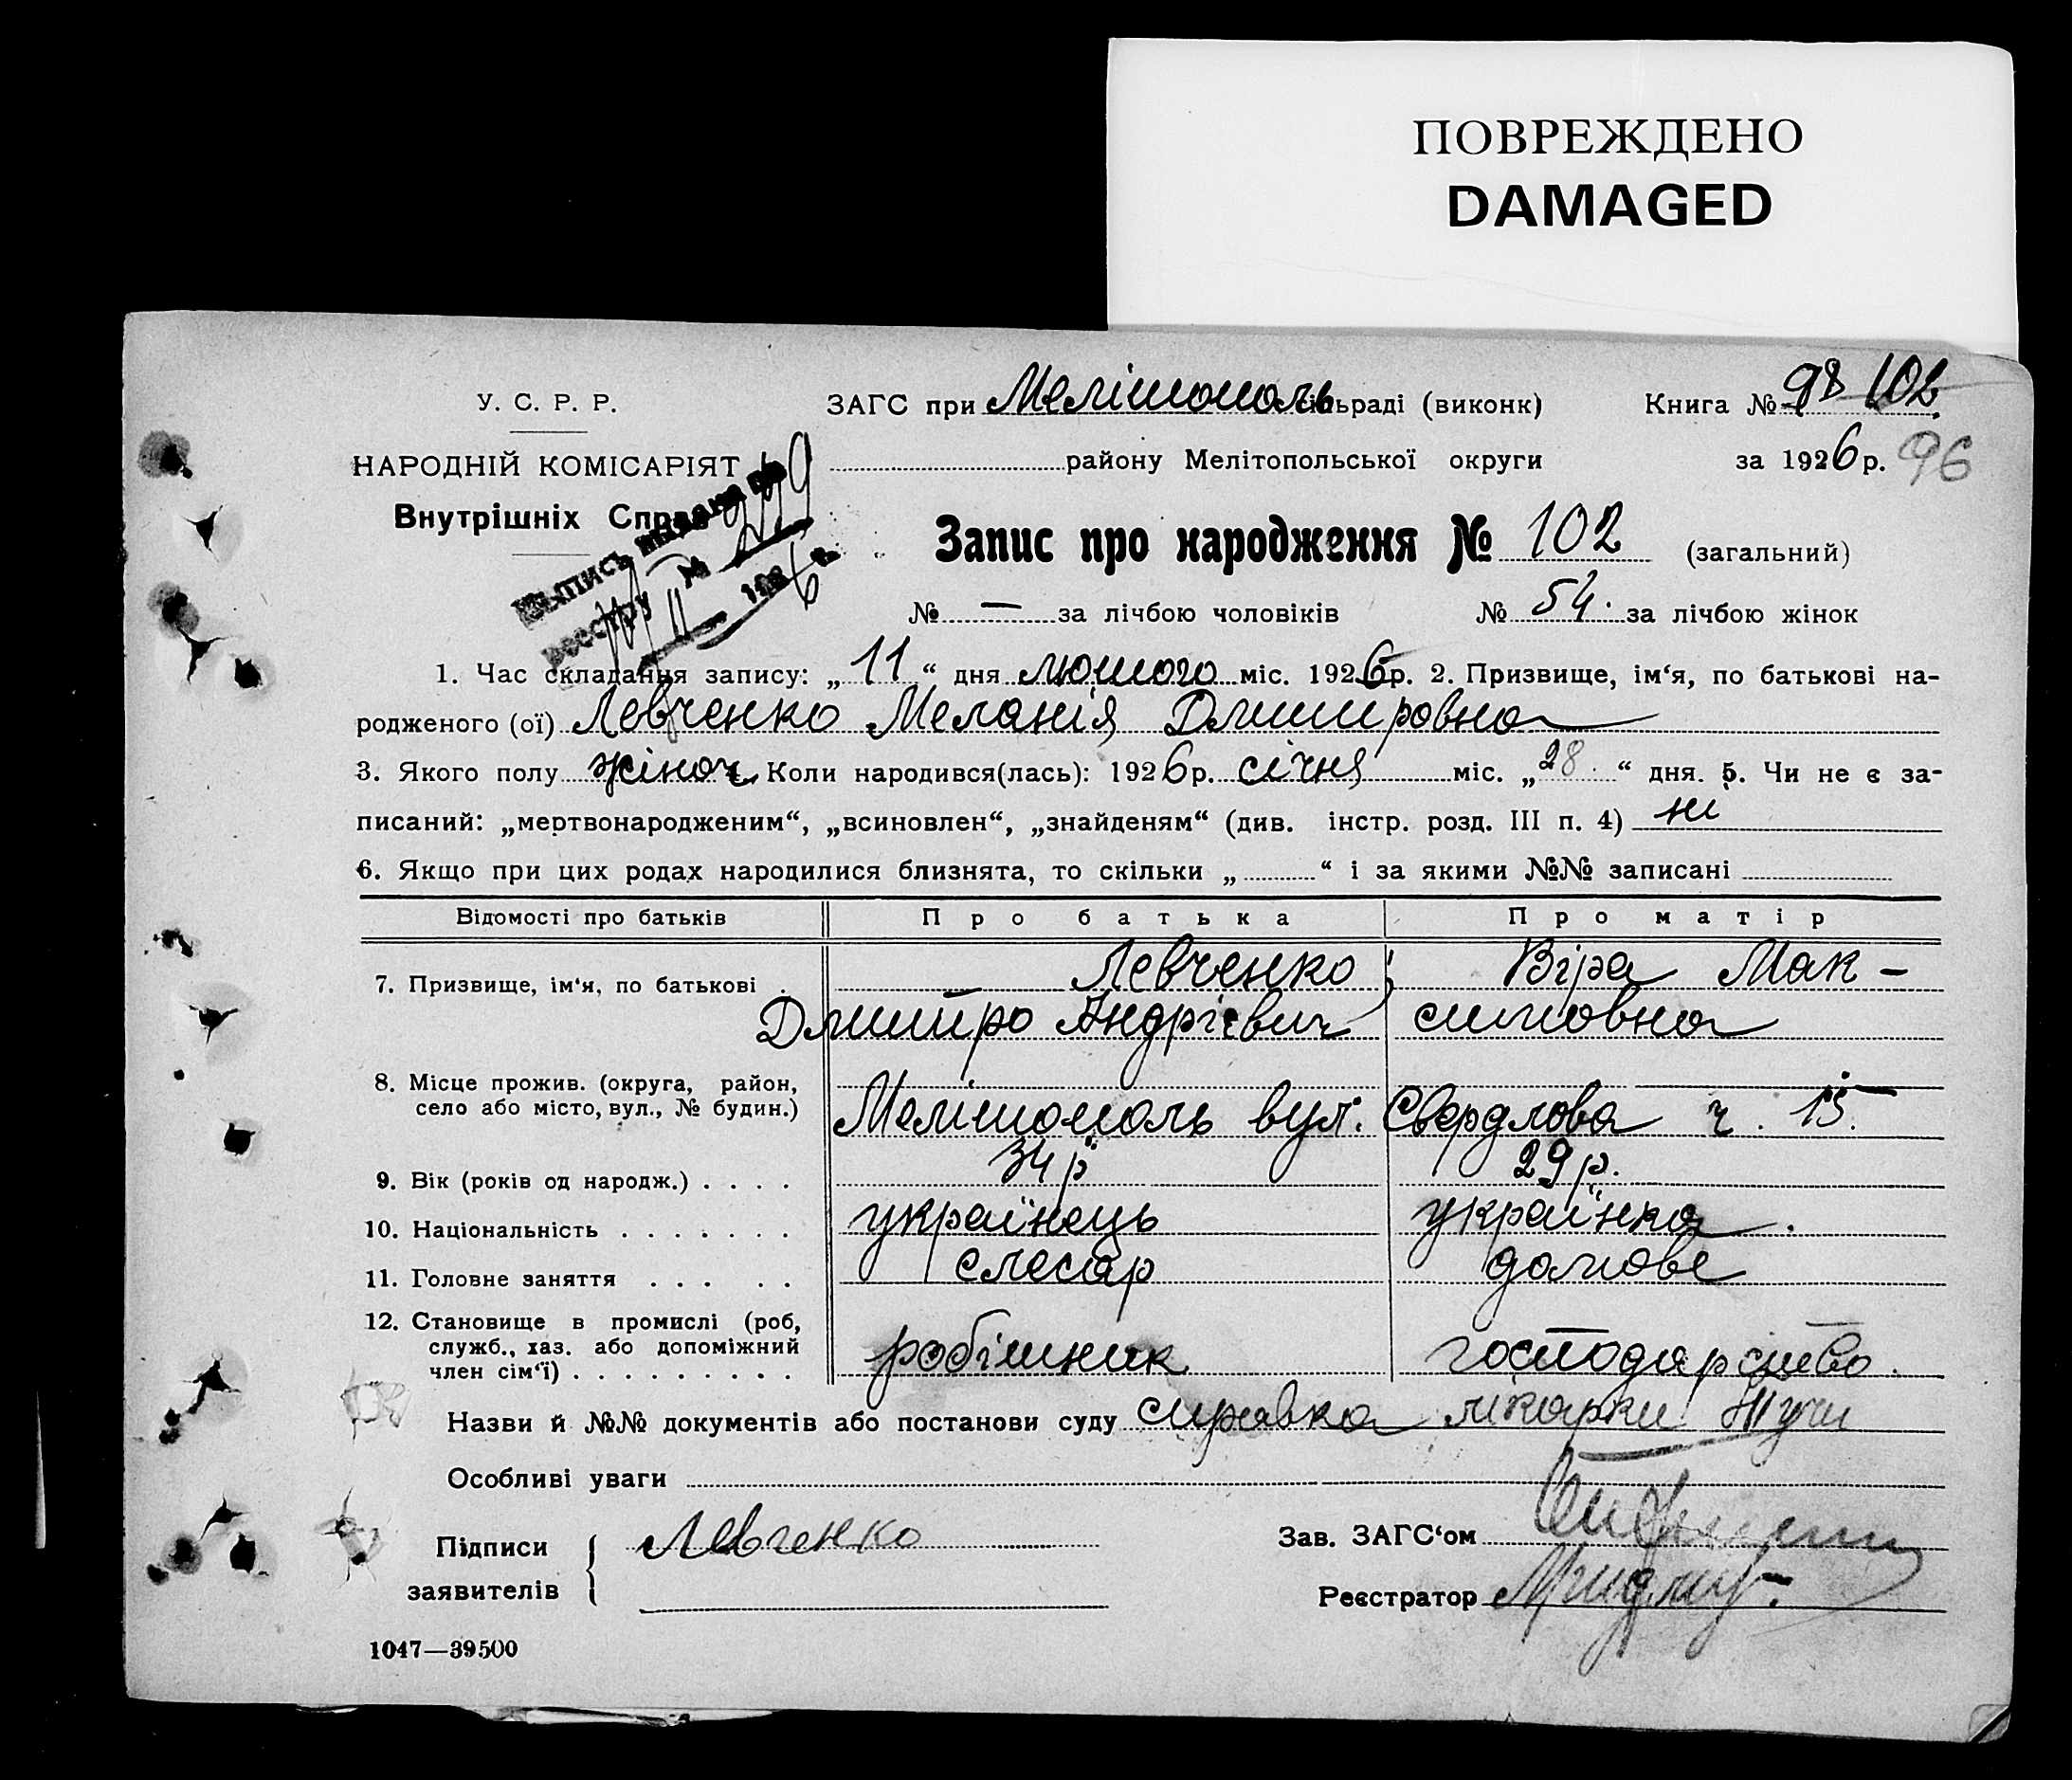 ПОВРЕЖДЕНО
DAMAGED
У. С. Р. Р.
ЗАГС при Мелітополь сільраді (виконк)
Книга № 98 102
НАРОДНІЙ КОМІСАРІЯТ
району Мелітопольської округи
за 1926 р. 96
Внутрішніх Справ
Выпись выдана по
реестру №
11 II 1926 г.
Запис про народження № 102 (загальний)
№ — за лічбою чоловіків № 54. за лічбою жінок
1. Час складання запису: „11“ дня лютого міс. 1926 р. 2. Призвище, ім‘я, по батькові на-
родженого (ої) Левченко Меланія Дмитровна
3. Якого полу жіноч 4. Коли народився(лась): 1926 р. січня міс. „28“ дня. 5. Чи не є за-
писаний: „мертвонародженим“, „всиновлен“, „знайденям“ (див. інстр. розд. III п. 4) ні
6. Якщо при цих родах народилися близнята, то скільки „ “ і за якими №№ записані
Відомості про батьків Про батька Про матір
7. Призвище, ім‘я, по батькові . Левченко Віра Мак-
Дмитро Андрієвич симовна
8. Місце прожив. (округа, район,
село або місто, вул., № будин.) Мелітополь вул. Свердлова ч. 15.
9. Вік (років од народж.) . . . . 34 р 29 р.
10. Національність . . . . . . . українець українка.
11. Головне заняття . . . . . слесар домове
12. Становище в промислі (роб,
служб., хаз. або допоміжний
член сім‘ї) . . . . . . . . . робітник господарство.
Назви й №№ документів або постанови суду справка лікарки
Особливі уваги
Підписи
заявителів
Левченко
Зав. ЗАГС‘ом
Реєстратор
1047—39500